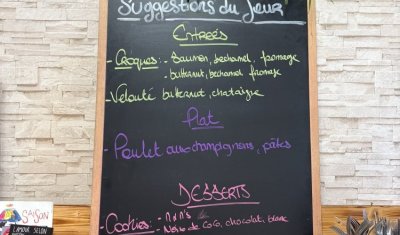 Suggestions du Jour
ENTRÉES
- Croques: - Saumon, bechamel, fromage
- butternut, bechamel fromage
- Velouté butternut, chataigne
Plat
- Poulet aux champignons, pâtes
DESSERTS
- Cookies: - M&M's
- Noix de coco, chocolat blanc
SAISON
L'AMOUR SELON